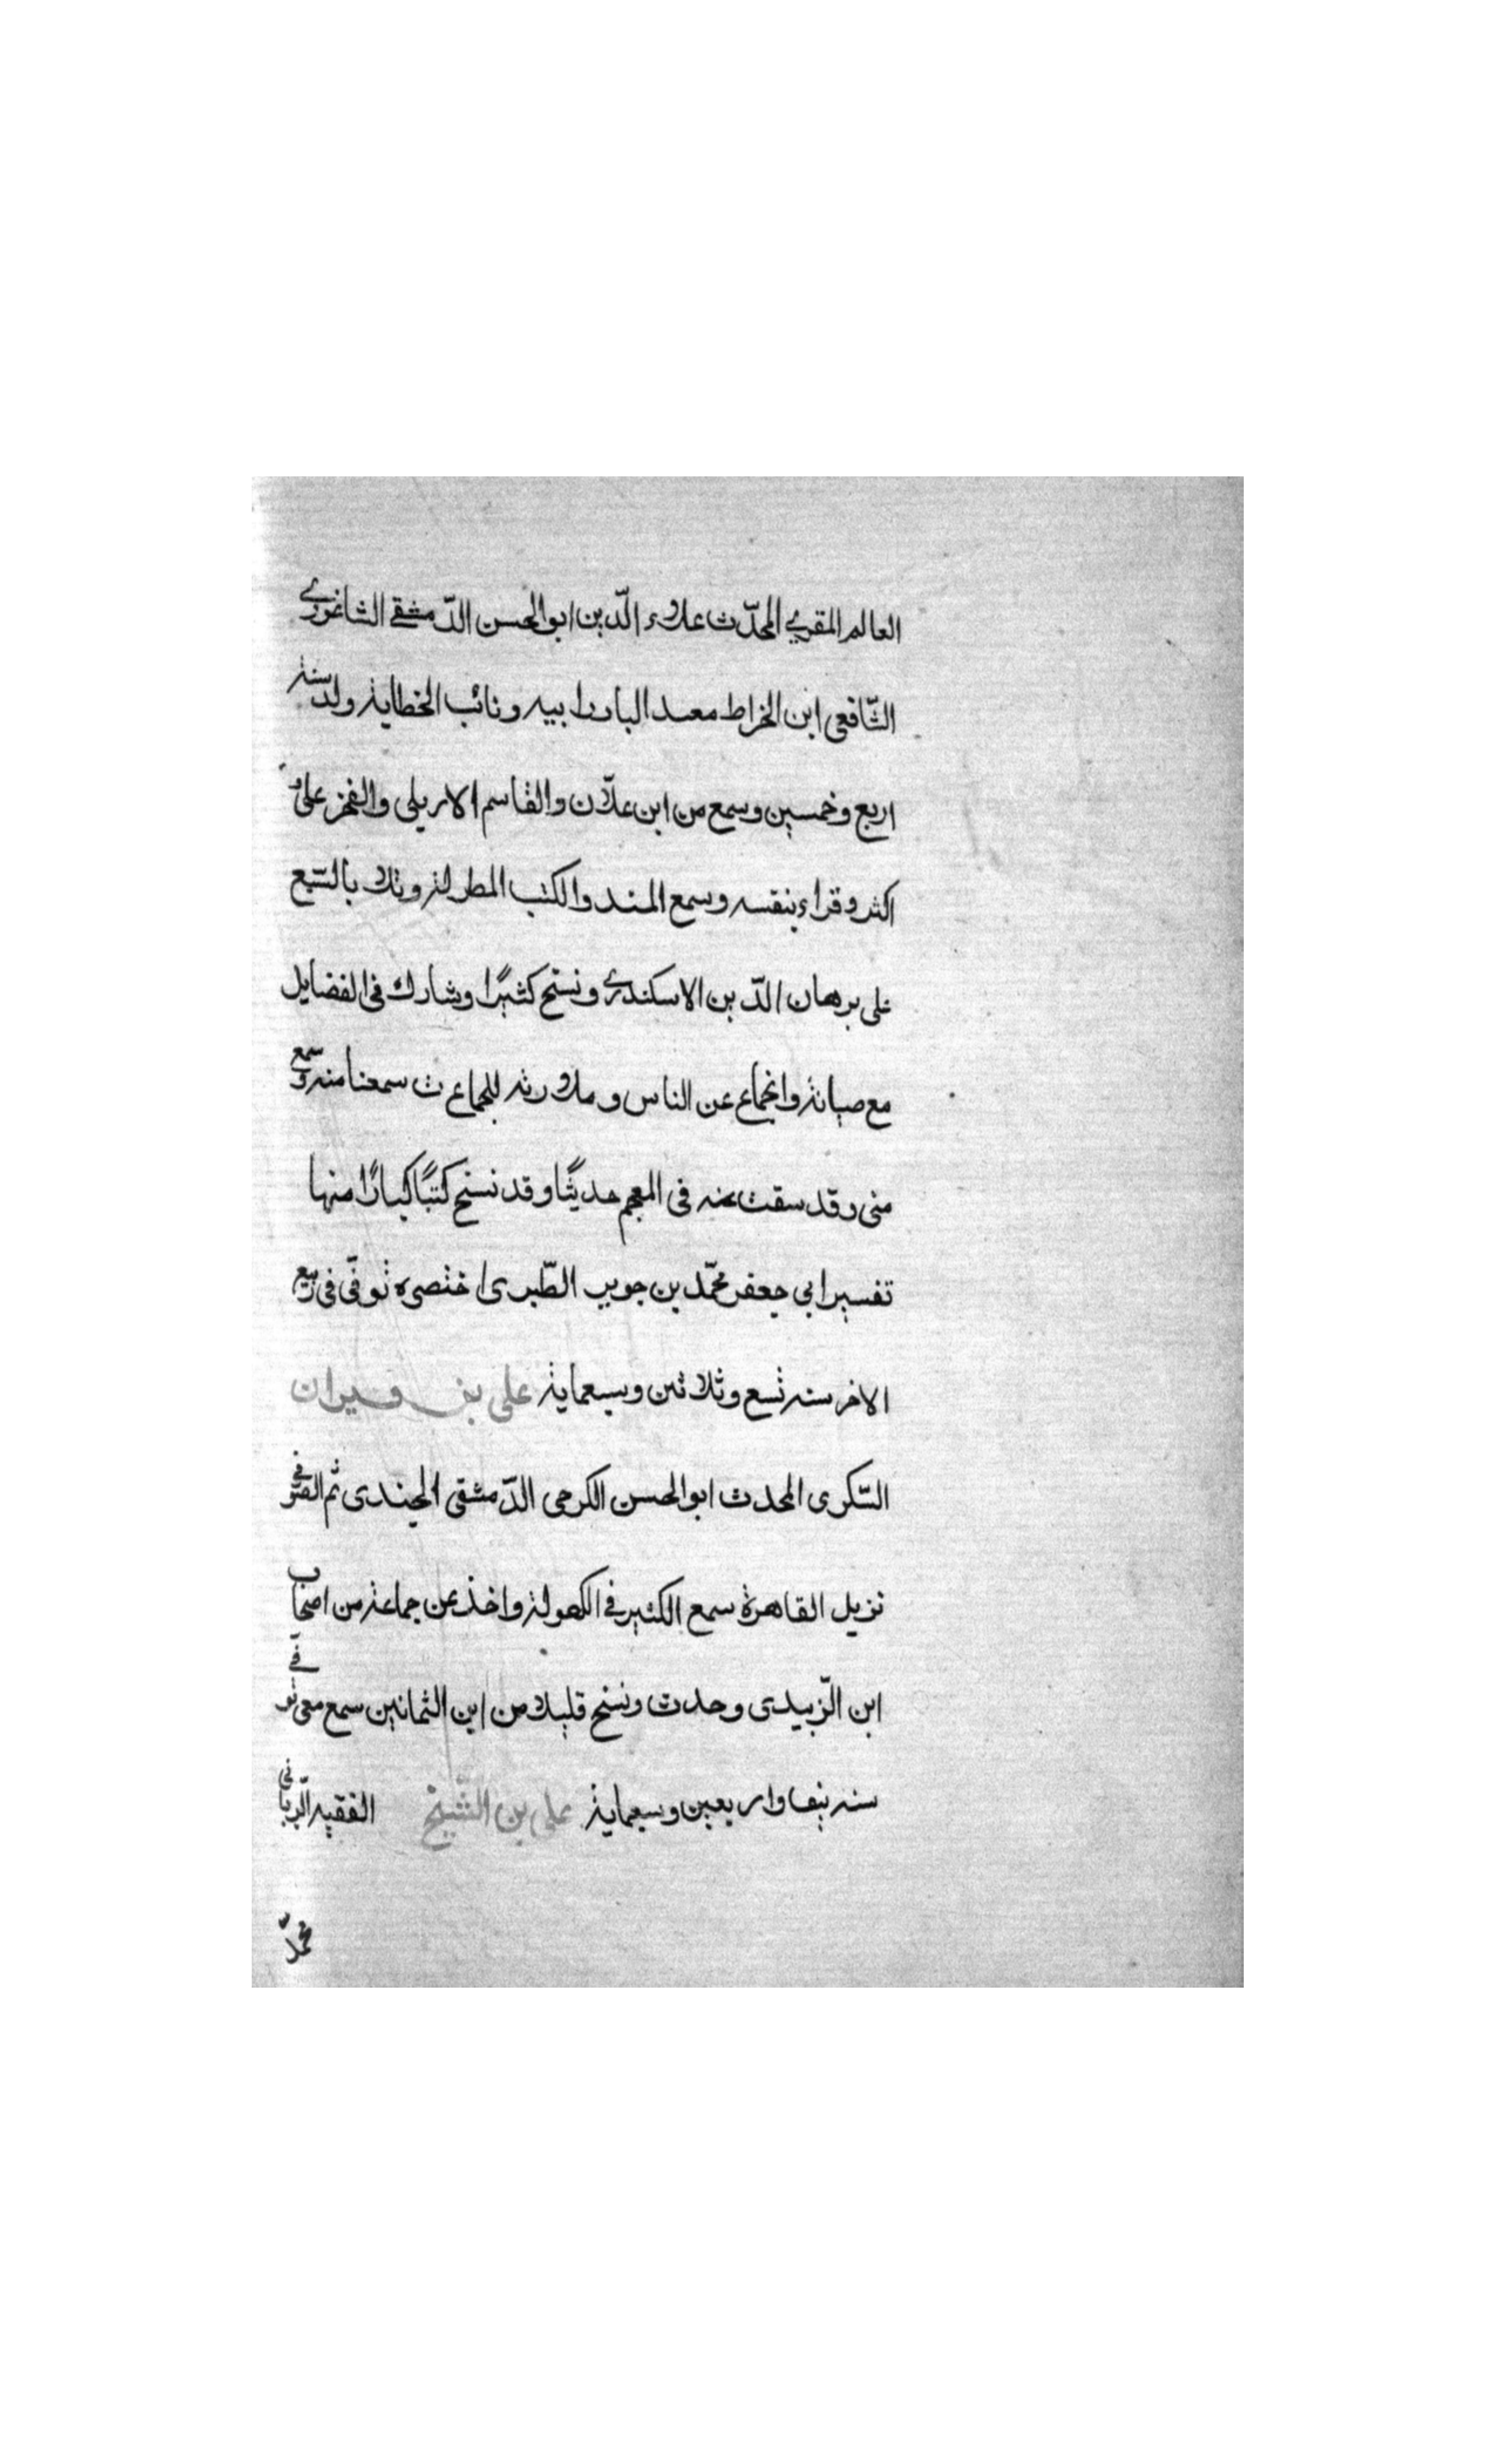 العالم المقري المحدّث علاء الدّين ابو الحسن الدّمشقي الشاغوري
الشّافعي ابن الخراط معيد البادرابيه ونائب الخطابة ولد سنة
اربع وخمسين وسمع من ابن علّان والقاسم الاربلي والفخر على و
اكثر وقراء بنفسه وسمع المسند والكتب المطولة وتلا بالسّبع
على برهان الدّين الاسكندري ونسخ كثيرًا وشارك فى الفضايل
مع صيانة وانجماع عن الناس وملازمته للجماعت سمعنا منه وسمع
منى وقد سقت عنه فى المعجم حديثًا وقد نسخ كتبًا كبارًا منها
تفسير ابي جعفر محمّد بن جرير الطّبرى اختصره توفّى فى ربيع
الاخر سنه تسع وثلاثين وسبعماية على بن قيران
السّكرى المحدث ابو الحسن الكرمى الدّمشقى الجندى ثم الصّوفى
نزيل القاهرة سمع الكثير في الكهولة واخذ عن جماعة من اصحاب
ابن الزّبيدى وحدث ونسخ قليلا من ابن الثمانين سمع معى توفّي
سنه نيف واربعين وسبعماية على بن الشّيخ الفقيه الرّبانى
محمّد